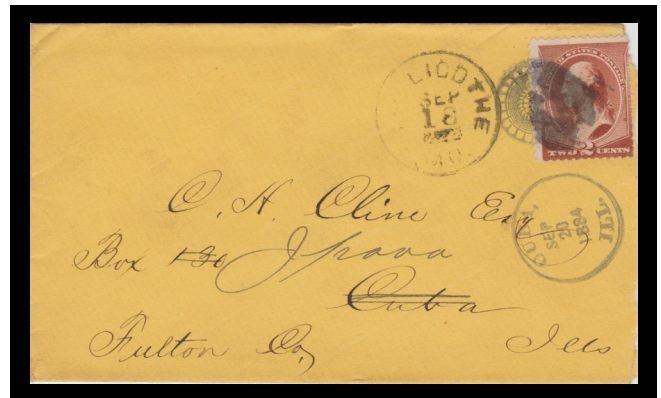 LICOTHE
SEP
18
MO.
UNITED STATES POSTAGE
TWO 2 CENTS
CUBA,
SEP
20
1884
ILL.
C. H. Cline Esq
Box 130 Ipava
Cuba
Fulton Co, Ills